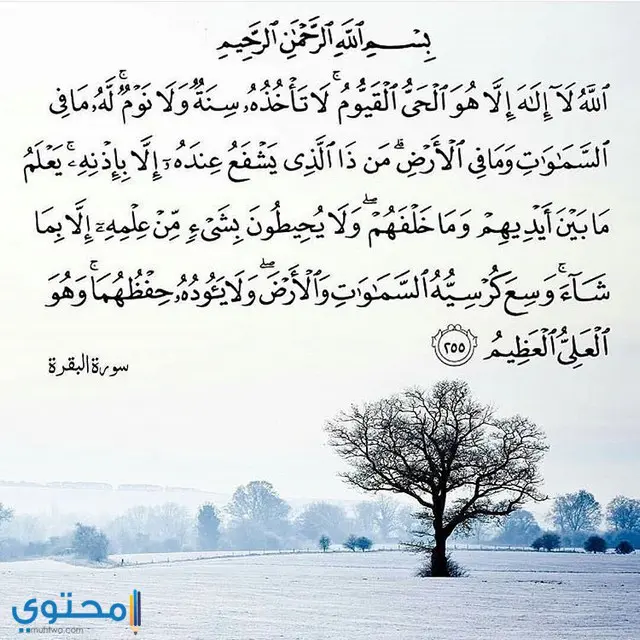 بِسْمِ ٱللَّهِ ٱلرَّحْمَٰنِ ٱلرَّحِيمِ
ٱللَّهُ لَآ إِلَٰهَ إِلَّا هُوَ ٱلْحَىُّ ٱلْقَيُّومُ ۚ لَا تَأْخُذُهُۥ سِنَةٌ وَلَا نَوْمٌ ۚ لَّهُۥ مَا فِى
ٱلسَّمَٰوَٰتِ وَمَا فِى ٱلْأَرْضِ ۗ مَن ذَا ٱلَّذِى يَشْفَعُ عِندَهُۥٓ إِلَّا بِإِذْنِهِۦ ۚ يَعْلَمُ
مَا بَيْنَ أَيْدِيهِمْ وَمَا خَلْفَهُمْ ۖ وَلَا يُحِيطُونَ بِشَىْءٍ مِّنْ عِلْمِهِۦٓ إِلَّا بِمَا
شَآءَ ۚ وَسِعَ كُرْسِيُّهُ ٱلسَّمَٰوَٰتِ وَٱلْأَرْضَ ۖ وَلَا يَـُٔودُهُۥ حِفْظُهُمَا ۚ وَهُوَ
ٱلْعَلِىُّ ٱلْعَظِيمُ ٢٥٥
سورة البقرة
محتوي
muhtwa.com